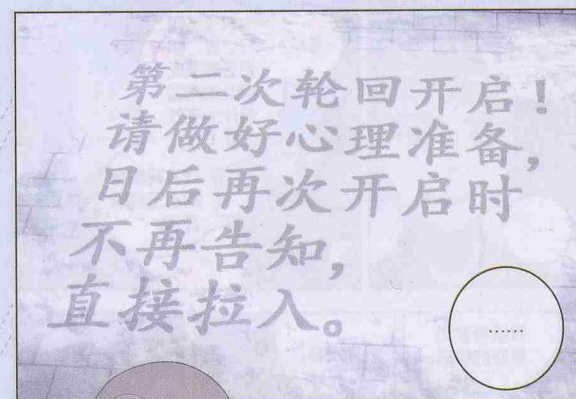 第二次轮回开启！
请做好心理准备，
日后再次开启时
不再告知，
直接拉入。
……